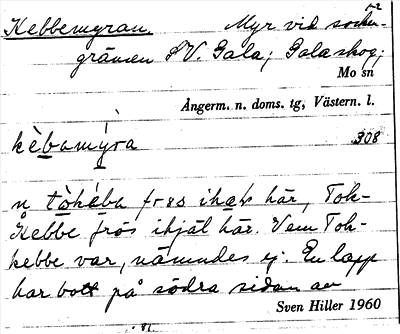 Kebbemyran. Myr vid socken-
gränsen S V. Gala; Galaskog;
Mo sn
Ångerm. n. doms. tg, Västern. l.
kèbamýra 308
n tòkèba frøs ihæl här, Tok-
Kebbe frös ihjäl här. Vem Tok-
kebbe var, nämndes ej. En lapp
har bott på södra sidan av
Sven Hiller 1960